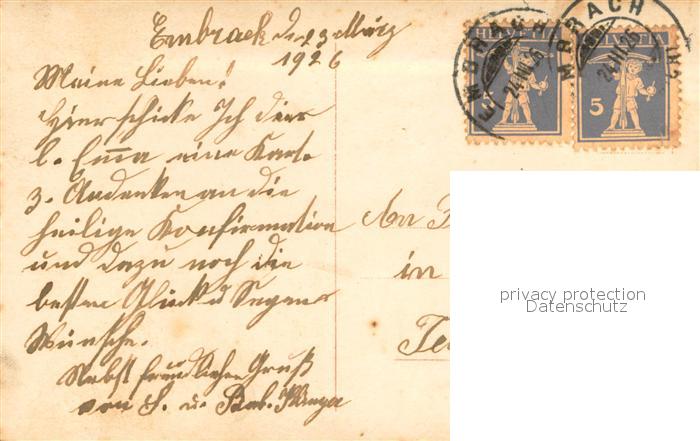 Embrach den 23 März
1926
Meine Lieben!
Hier schicke Ich dier
l. Emma eine Karte
z. Andenken an die
heilige Konfirmation
und dazu noch die
besten Glück u Segens
Wünsche.
Nebst freundlichen Gruß
von u. Bab.
An
in
EMBRACH
24.III.26
HELVETIA
5
EMBRACH
24.III.26
HELVETIA
5
privacy protection
Datenschutz